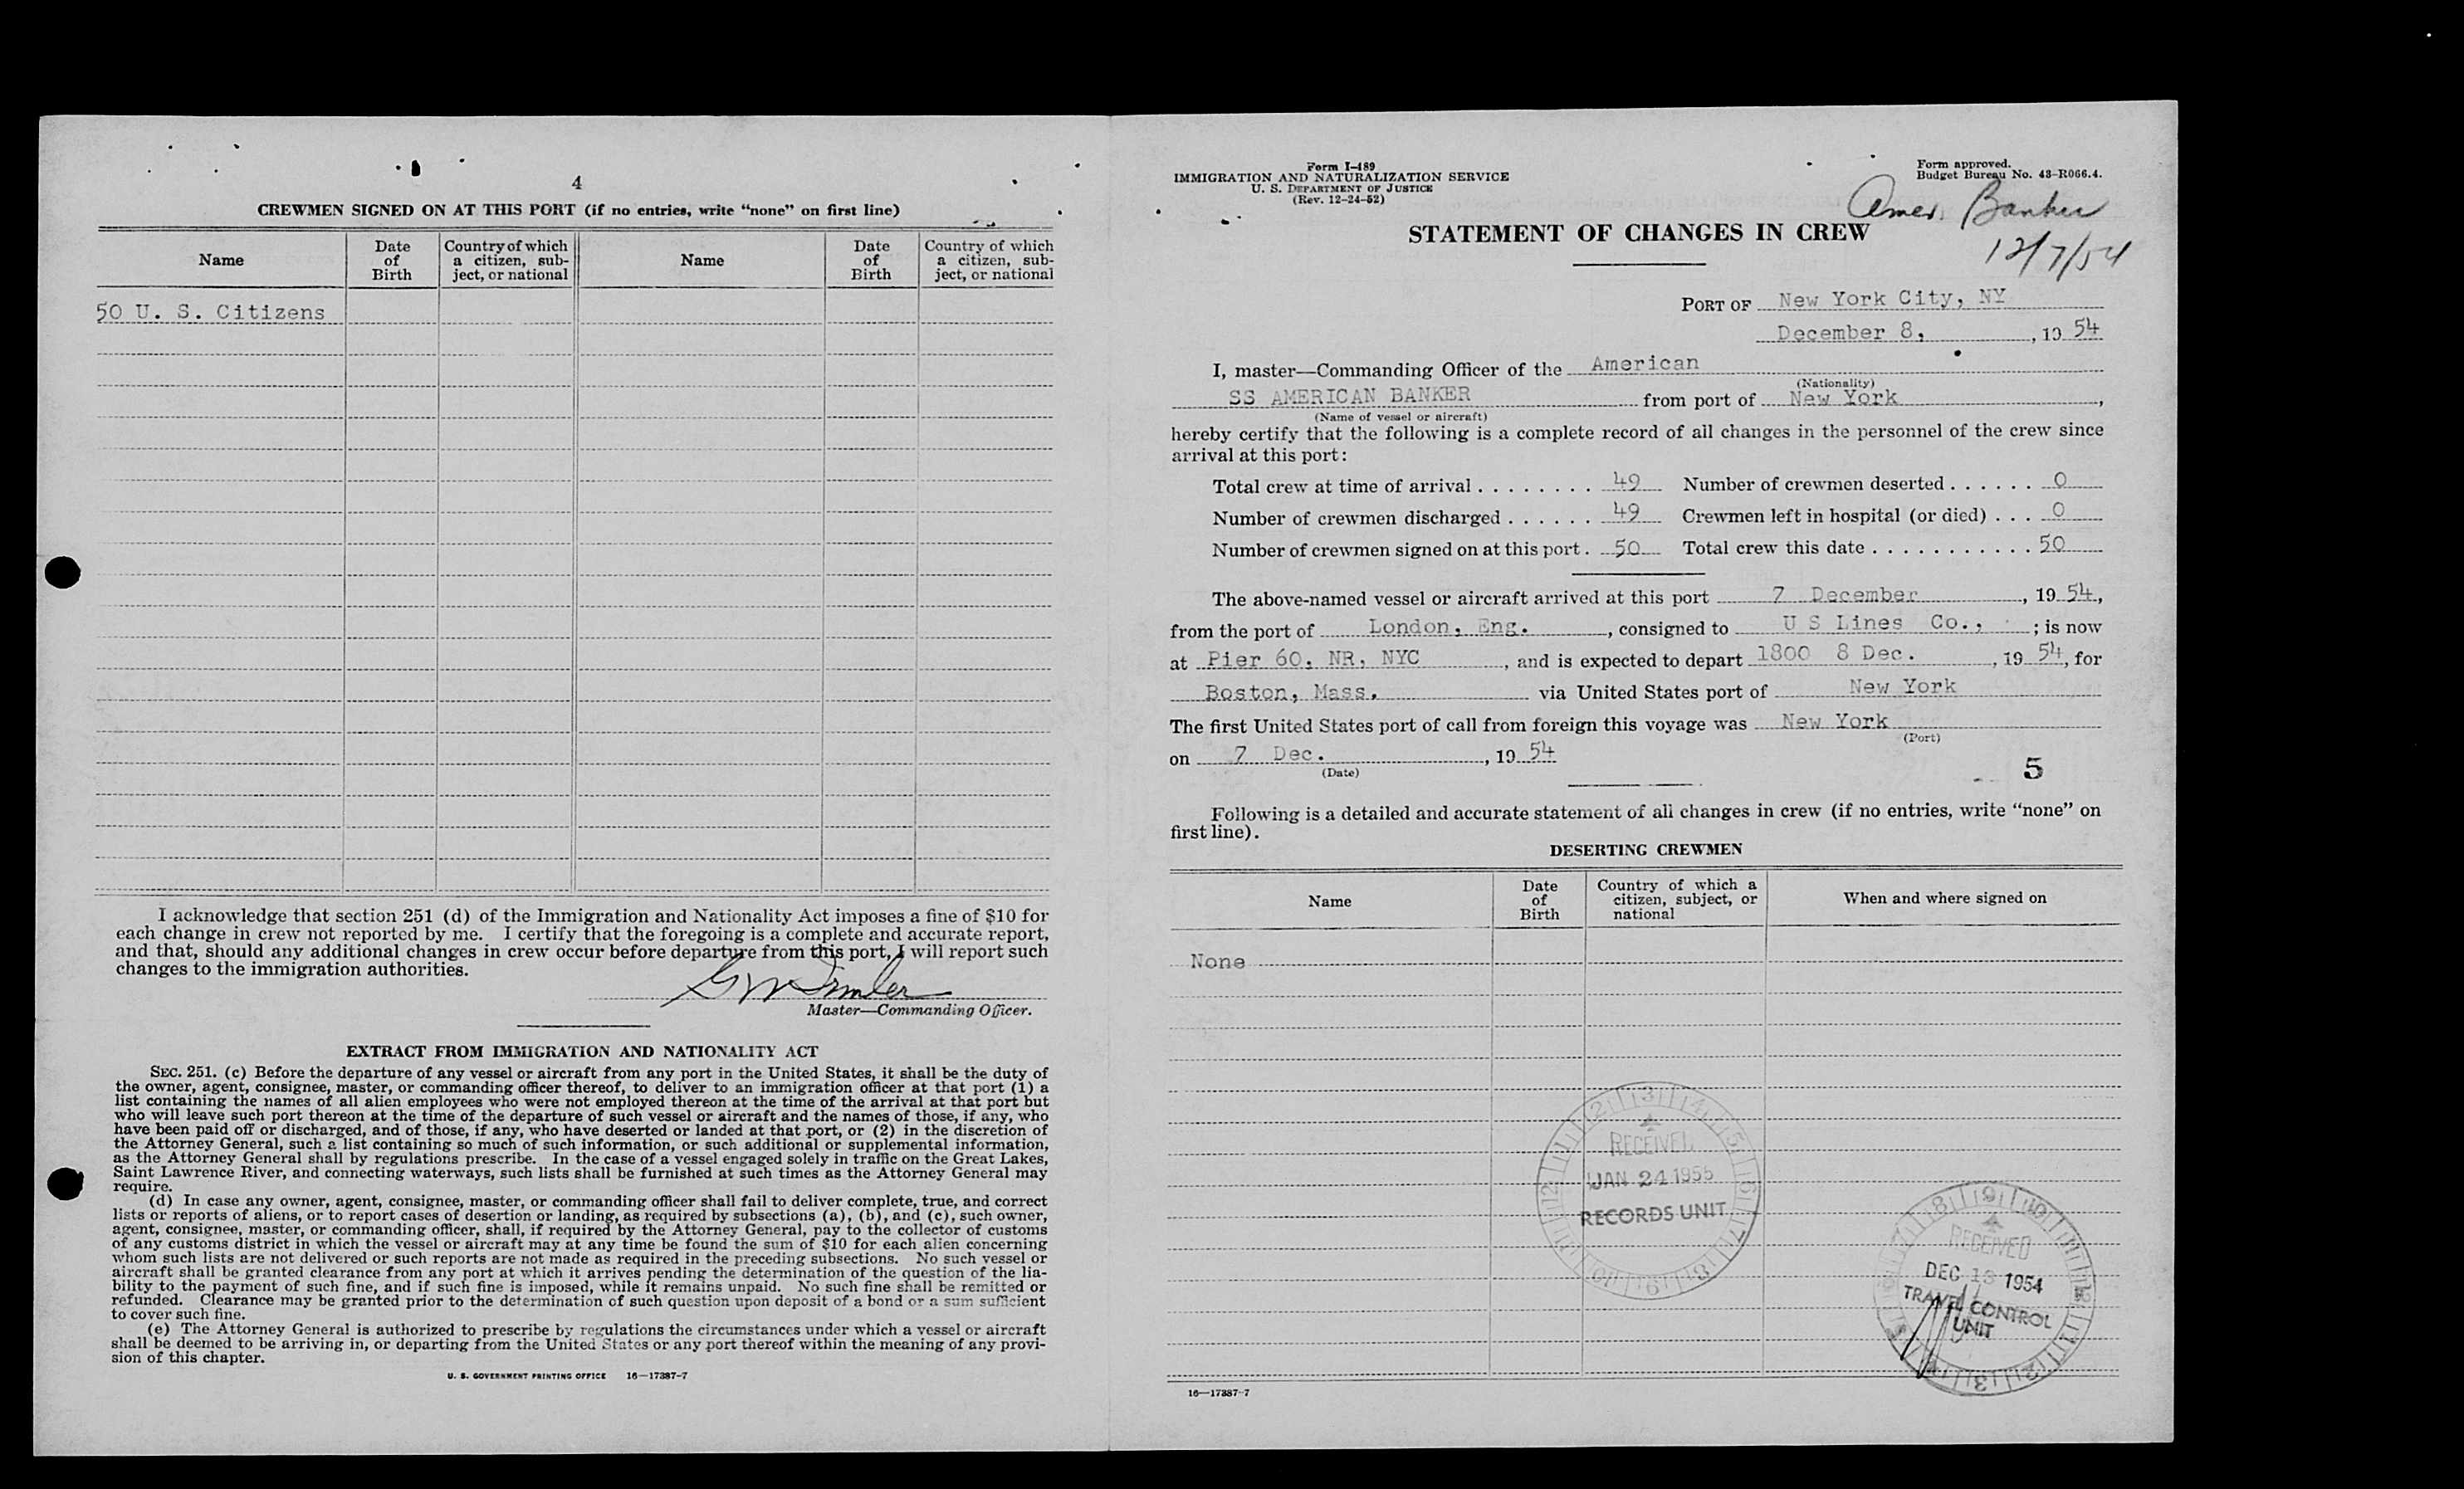 4
CREWMEN SIGNED ON AT THIS PORT (if no entries, write “none” on first line)
Name
Date of Birth
Country of which a citizen, sub-ject, or national
Name
Date of Birth
Country of which a citizen, sub-ject, or national
50 U. S. Citizens
I acknowledge that section 251 (d) of the Immigration and Nationality Act imposes a fine of $10 for
each change in crew not reported by me. I certify that the foregoing is a complete and accurate report,
and that, should any additional changes in crew occur before departure from this port, I will report such
changes to the immigration authorities.
Master—Commanding Officer.
EXTRACT FROM IMMIGRATION AND NATIONALITY ACT
SEC. 251. (c) Before the departure of any vessel or aircraft from any port in the United States, it shall be the duty of
the owner, agent, consignee, master, or commanding officer thereof, to deliver to an immigration officer at that port (1) a
list containing the names of all alien employees who were not employed thereon at the time of the arrival at that port but
who will leave such port thereon at the time of the departure of such vessel or aircraft and the names of those, if any, who
have been paid off or discharged, and of those, if any, who have deserted or landed at that port, or (2) in the discretion of
the Attorney General, such a list containing so much of such information, or such additional or supplemental information,
as the Attorney General shall by regulations prescribe. In the case of a vessel engaged solely in traffic on the Great Lakes,
Saint Lawrence River, and connecting waterways, such lists shall be furnished at such times as the Attorney General may
require.
(d) In case any owner, agent, consignee, master, or commanding officer shall fail to deliver complete, true, and correct
lists or reports of aliens, or to report cases of desertion or landing, as required by subsections (a), (b), and (c), such owner,
agent, consignee, master, or commanding officer, shall, if required by the Attorney General, pay to the collector of customs
of any customs district in which the vessel or aircraft may at any time be found the sum of $10 for each alien concerning
whom such lists are not delivered or such reports are not made as required in the preceding subsections. No such vessel or
aircraft shall be granted clearance from any port at which it arrives pending the determination of the question of the lia-
bility to the payment of such fine, and if such fine is imposed, while it remains unpaid. No such fine shall be remitted or
refunded. Clearance may be granted prior to the determination of such question upon deposit of a bond or a sum sufficient
to cover such fine.
(e) The Attorney General is authorized to prescribe by regulations the circumstances under which a vessel or aircraft
shall be deemed to be arriving in, or departing from the United States or any port thereof within the meaning of any provi-
sion of this chapter.
U. S. GOVERNMENT PRINTING OFFICE 16—17387-7
Form I-489
IMMIGRATION AND NATURALIZATION SERVICE
U. S. DEPARTMENT OF JUSTICE
(Rev. 12-24-52)
Form approved.
Budget Bureau No. 43-R066.4.
Amer. Banker
12/7/54
STATEMENT OF CHANGES IN CREW
PORT OF New York City, NY
December 8, , 19 54
I, master—Commanding Officer of the American
(Nationality)
SS AMERICAN BANKER from port of New York ,
(Name of vessel or aircraft)
hereby certify that the following is a complete record of all changes in the personnel of the crew since
arrival at this port:
Total crew at time of arrival . . . . . . . . 49 Number of crewmen deserted . . . . . . 0
Number of crewmen discharged . . . . . . 49 Crewmen left in hospital (or died) . . . 0
Number of crewmen signed on at this port . 50 Total crew this date . . . . . . . . . . . 50
The above-named vessel or aircraft arrived at this port 7 December , 19 54,
from the port of London, Eng. , consigned to U S Lines Co., ; is now
at Pier 60, NR, NYC , and is expected to depart 1800 8 Dec. , 19 54, for
Boston, Mass. via United States port of New York
The first United States port of call from foreign this voyage was New York
(Port)
on 7 Dec. , 19 54
(Date)
5
Following is a detailed and accurate statement of all changes in crew (if no entries, write “none” on
first line).
DESERTING CREWMEN
Name
Date of Birth
Country of which a citizen, subject, or national
When and where signed on
None
RECEIVED
JAN 24 1955
RECORDS UNIT
RECEIVED
DEC 1954
TRAVEL CONTROL
UNIT
16—17387-7